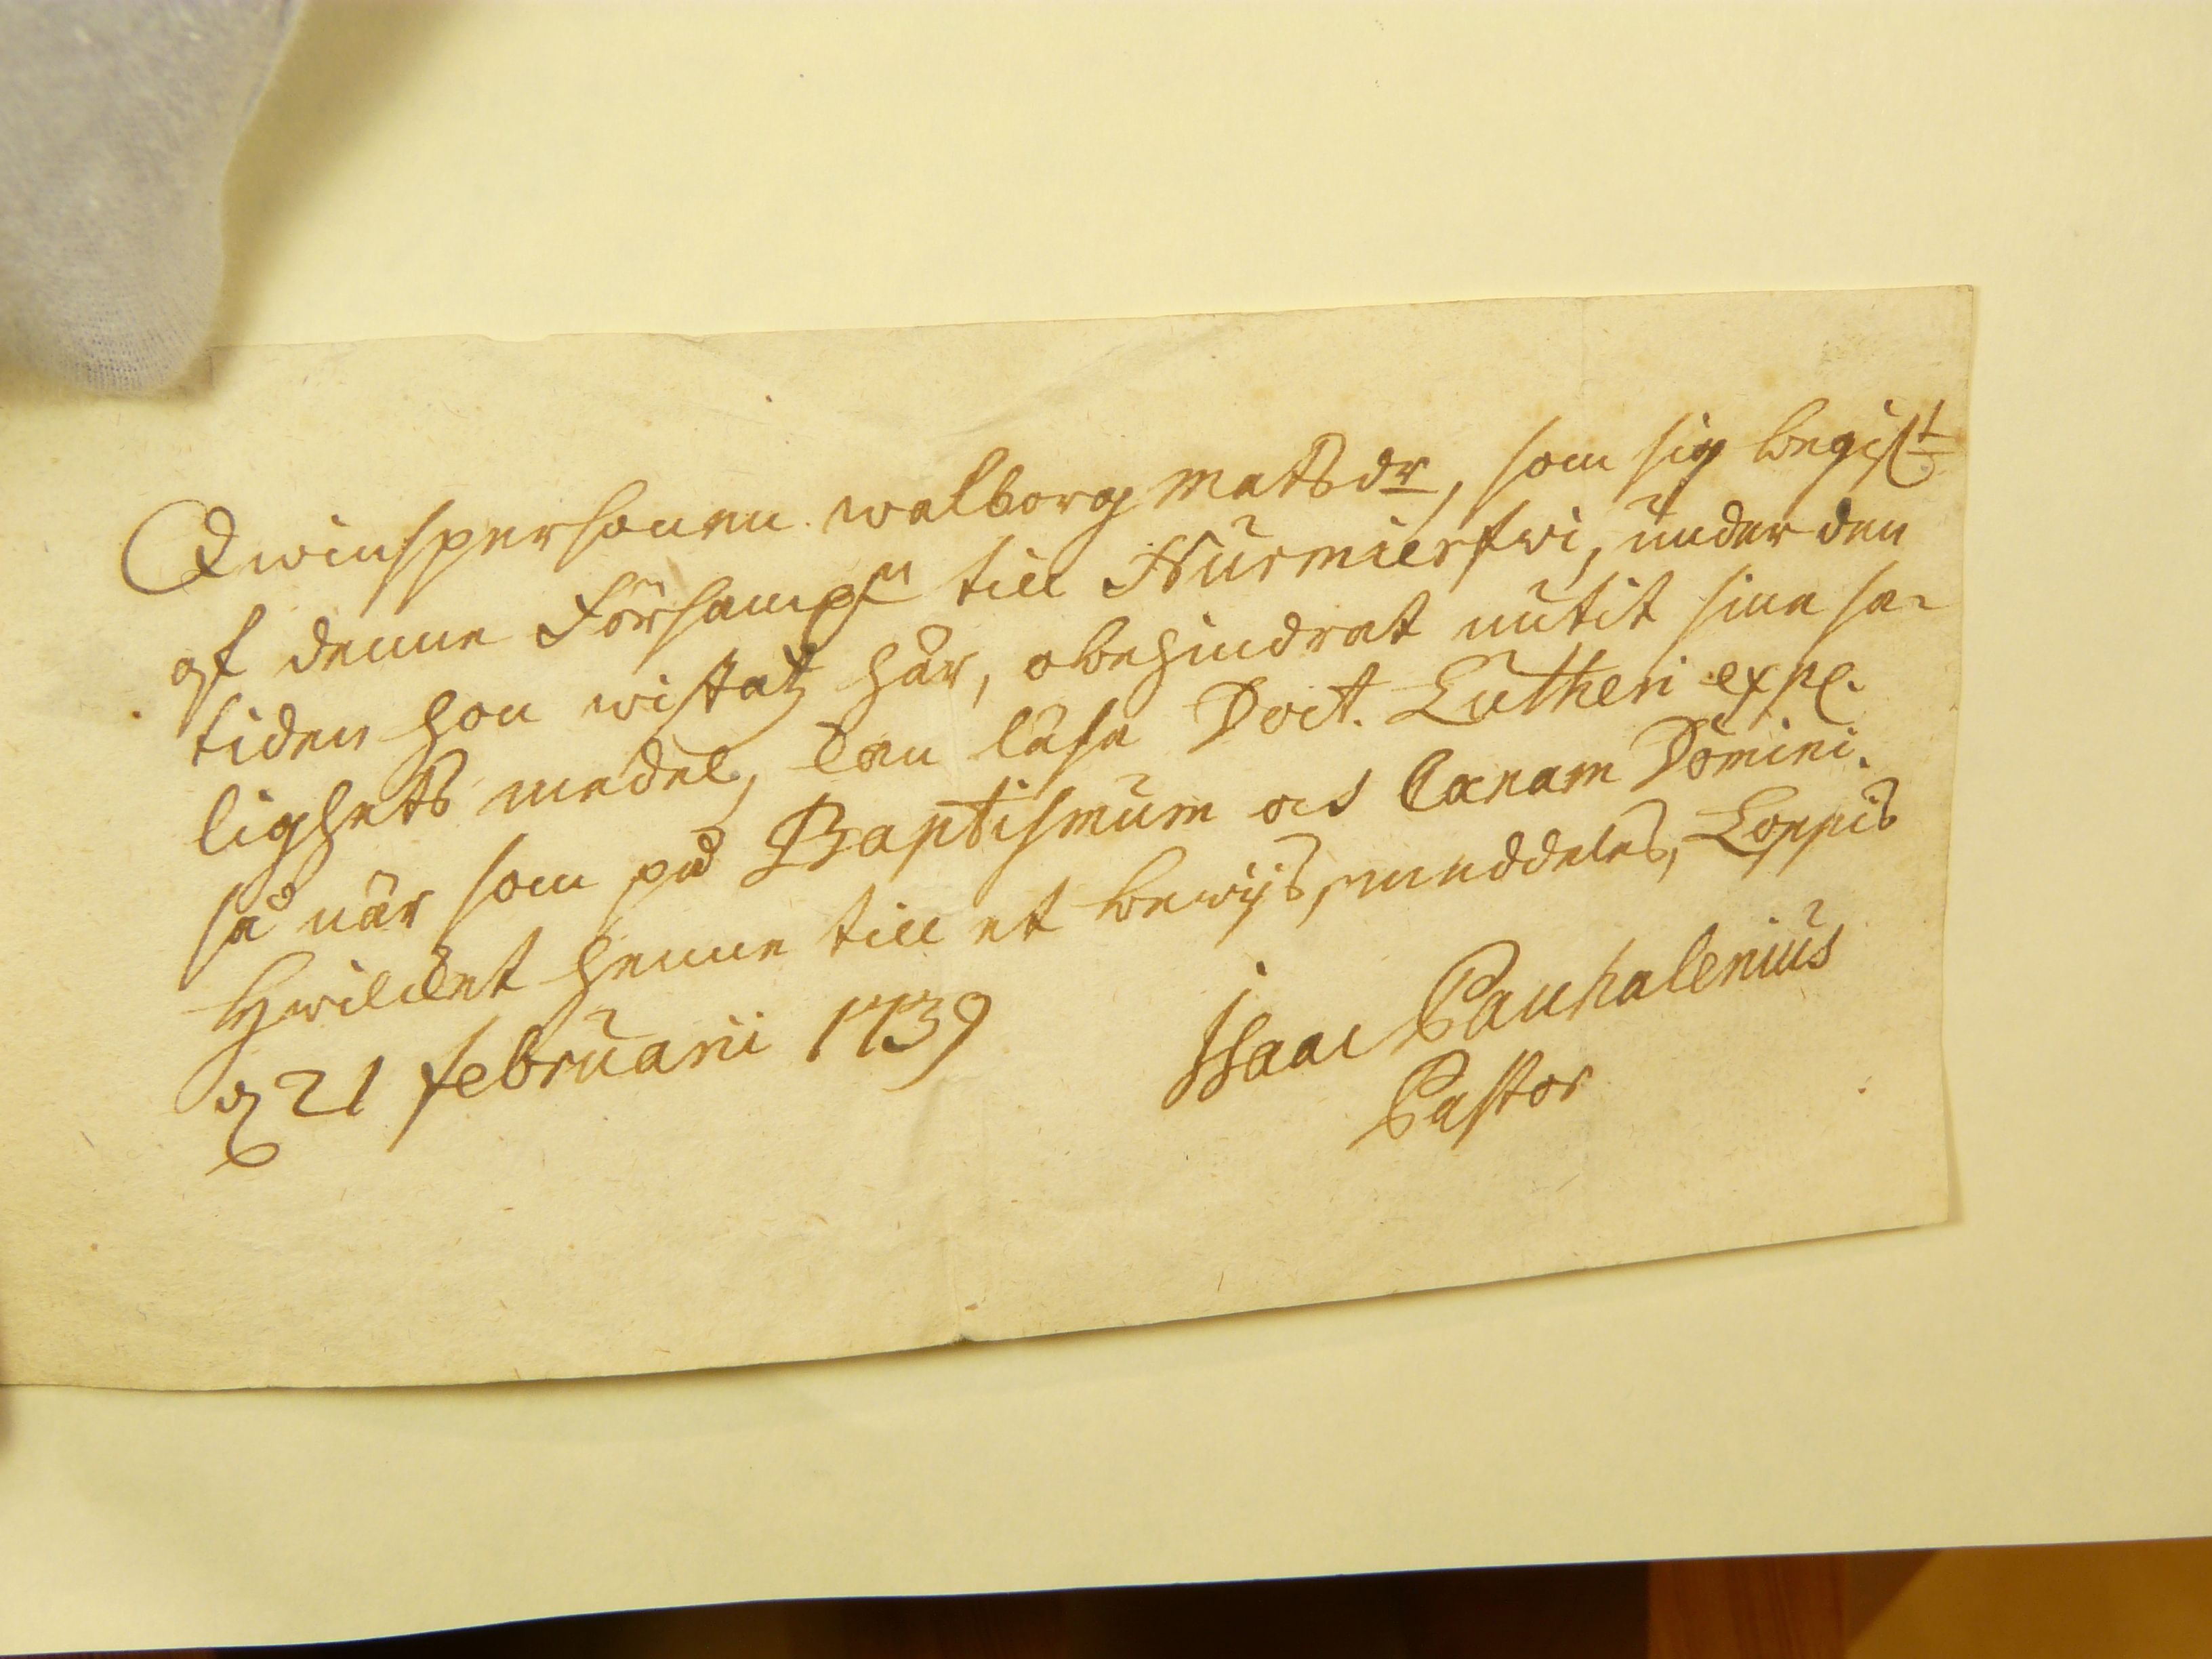 Qwinspersonen walborg Matsdr, som sig begift
af denne Försampln till Nurmierfwi, under den
tiden hon wistatz här, obehindrat nutit sina sa-
lighets medel, kan läsa Doct. Lutheri expl.
så när som på Baptismum och Cænam Domini.
Hwilcket henne till et bewijs, meddeles, Loppis
d 21 februarii 1739
Isaac Pauhalenius
Pastor